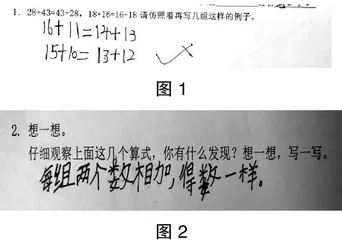 1. 28+43=43+28，18+16=16+18 请仿照着再写几组这样的例子。
16+11=14+13
15+10=13+12
图 1
2. 想一想。
仔细观察上面这几个算式，你有什么发现？想一想，写一写。
每组两个数相加，得数一样。
图 2